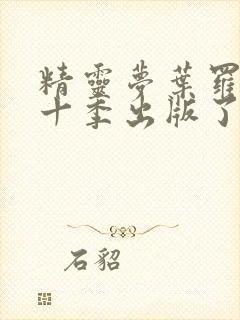 精靈夢葉羅
十季出版了
石貂